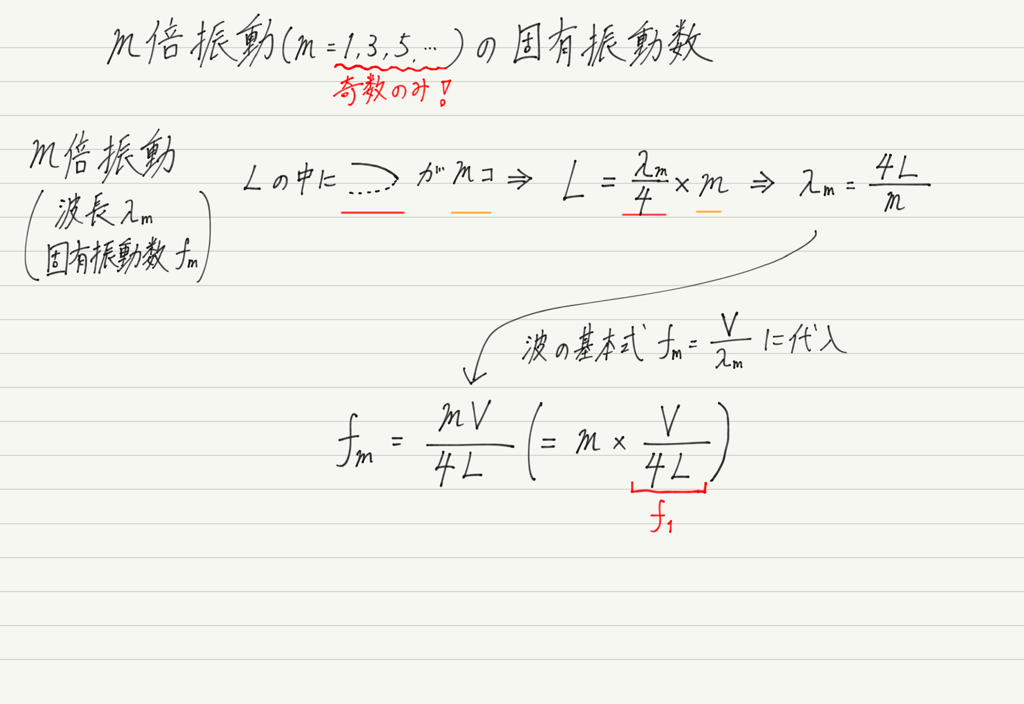 m倍振動(m=1,3,5,…)の固有振動数
奇数のみ!
m倍振動
(波長 λm
固有振動数 fm)
Lの中に が mコ ⇒ L = λm/4 × m ⇒ λm = 4L/m
波の基本式 fm = V/λm に代入
fm = mV/4L (= m × V/4L)
f1